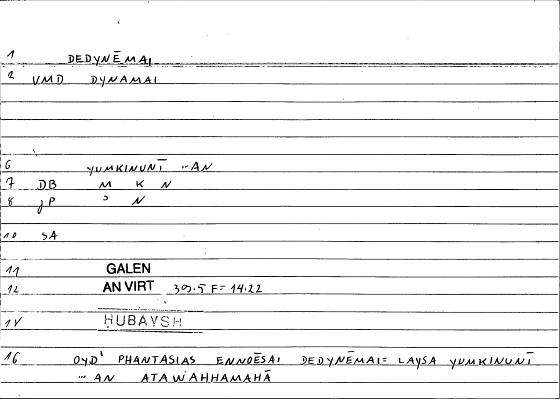 1 DEDYNĒMAI
2 VMD DYNAMAI
6 YUMKINUNĪ ··AN
7 DB M K N
8 JP ᵓ N
10 SA
11 GALEN
12 AN VIRT 39.5 F= 14.22
1V ḤUBAYSH
16 OYD' PHANTASIAS ENNOĒSAI DEDYNĒMAI= LAYSA YUMKINUNĪ
··· AN ATAWAHHAMAHĀ